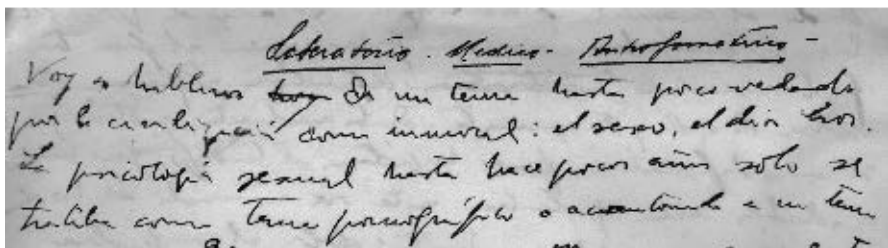 Laboratorio - Medico - Antropometrico -
Voy a hablaros hoy de un tema hasta poco vedado
por la civilización como inmoral: el sexo, el dios Eros.
La psicología sexual hasta hace pocos años solo se
trataba como tema pornográfico o a un tema